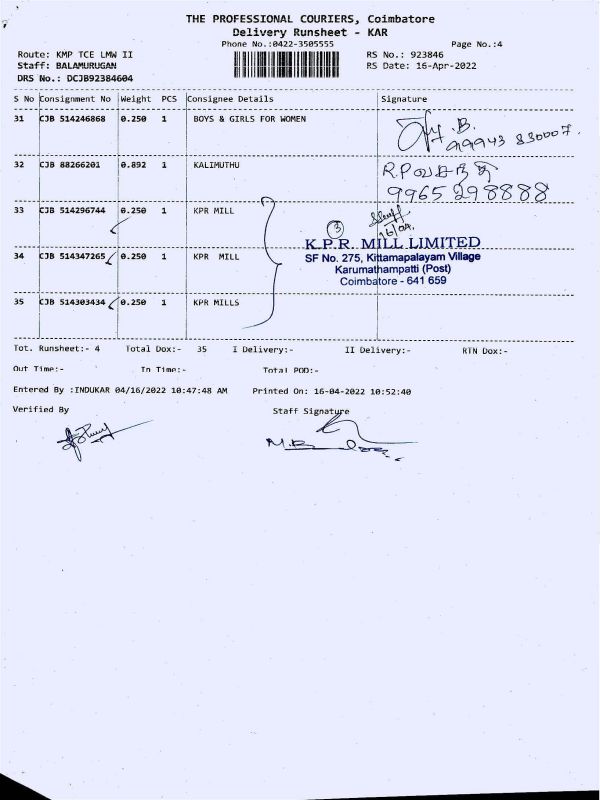 THE PROFESSIONAL COURIERS, Coimbatore
Delivery Runsheet - KAR
Phone No.:0422-3505555
Page No.:4
Route: KMP TCE LMW II
RS No.: 923846
Staff: BALAMURUGAN
RS Date: 16-Apr-2022
DRS No.: DCJB92384604
S No Consignment No Weight PCS Consignee Details Signature
31 CJB 514246868 0.250 1 BOYS & GIRLS FOR WOMEN
B.
99943 830007.
32 CJB 88266201 0.892 1 KALIMUTHU
R.P வசந்தி
9965 298888
33 CJB 514296744 0.250 1 KPR MILL
3
16/04.
K.P.R. MILL LIMITED
34 CJB 514347265 0.250 1 KPR MILL
SF No. 275, Kittamapalayam Village
Karumathampatti (Post)
Coimbatore - 641 659
35 CJB 514303434 0.250 1 KPR MILLS
Tot. Runsheet:- 4 Total Dox:- 35 I Delivery:- II Delivery:- RTN Dox:-
Out Time:- In Time:- Total POD:-
Entered By :INDUKAR 04/16/2022 10:47:48 AM Printed On: 16-04-2022 10:52:40
Verified By Staff Signature